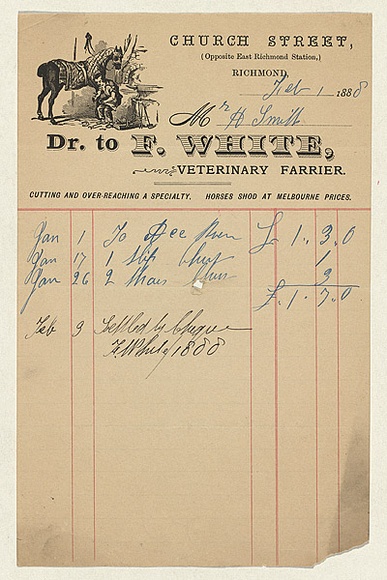 CHURCH STREET,
(Opposite East Richmond Station,)
RICHMOND,
Feb 1 1888
Mr H Smith
Dr. to F. WHITE,
VETERINARY FARRIER.
CUTTING AND OVER-REACHING A SPECIALTY. HORSES SHOD AT MELBOURNE PRICES.
Jan 1 To £ 1 . 3 . 0
Jan 17 1 1
Jan 26 2 3
£ . 1 . 7 . 0
Feb 9 Settled by Cheque
F. White 1888